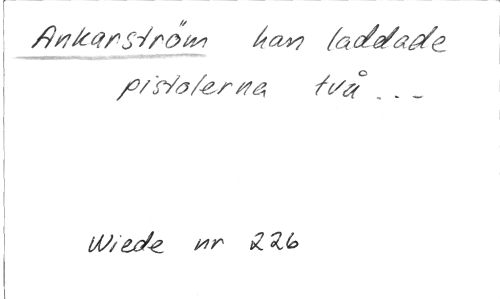 Ankarström han laddade
pistolerna två ...
Wiede nr 226